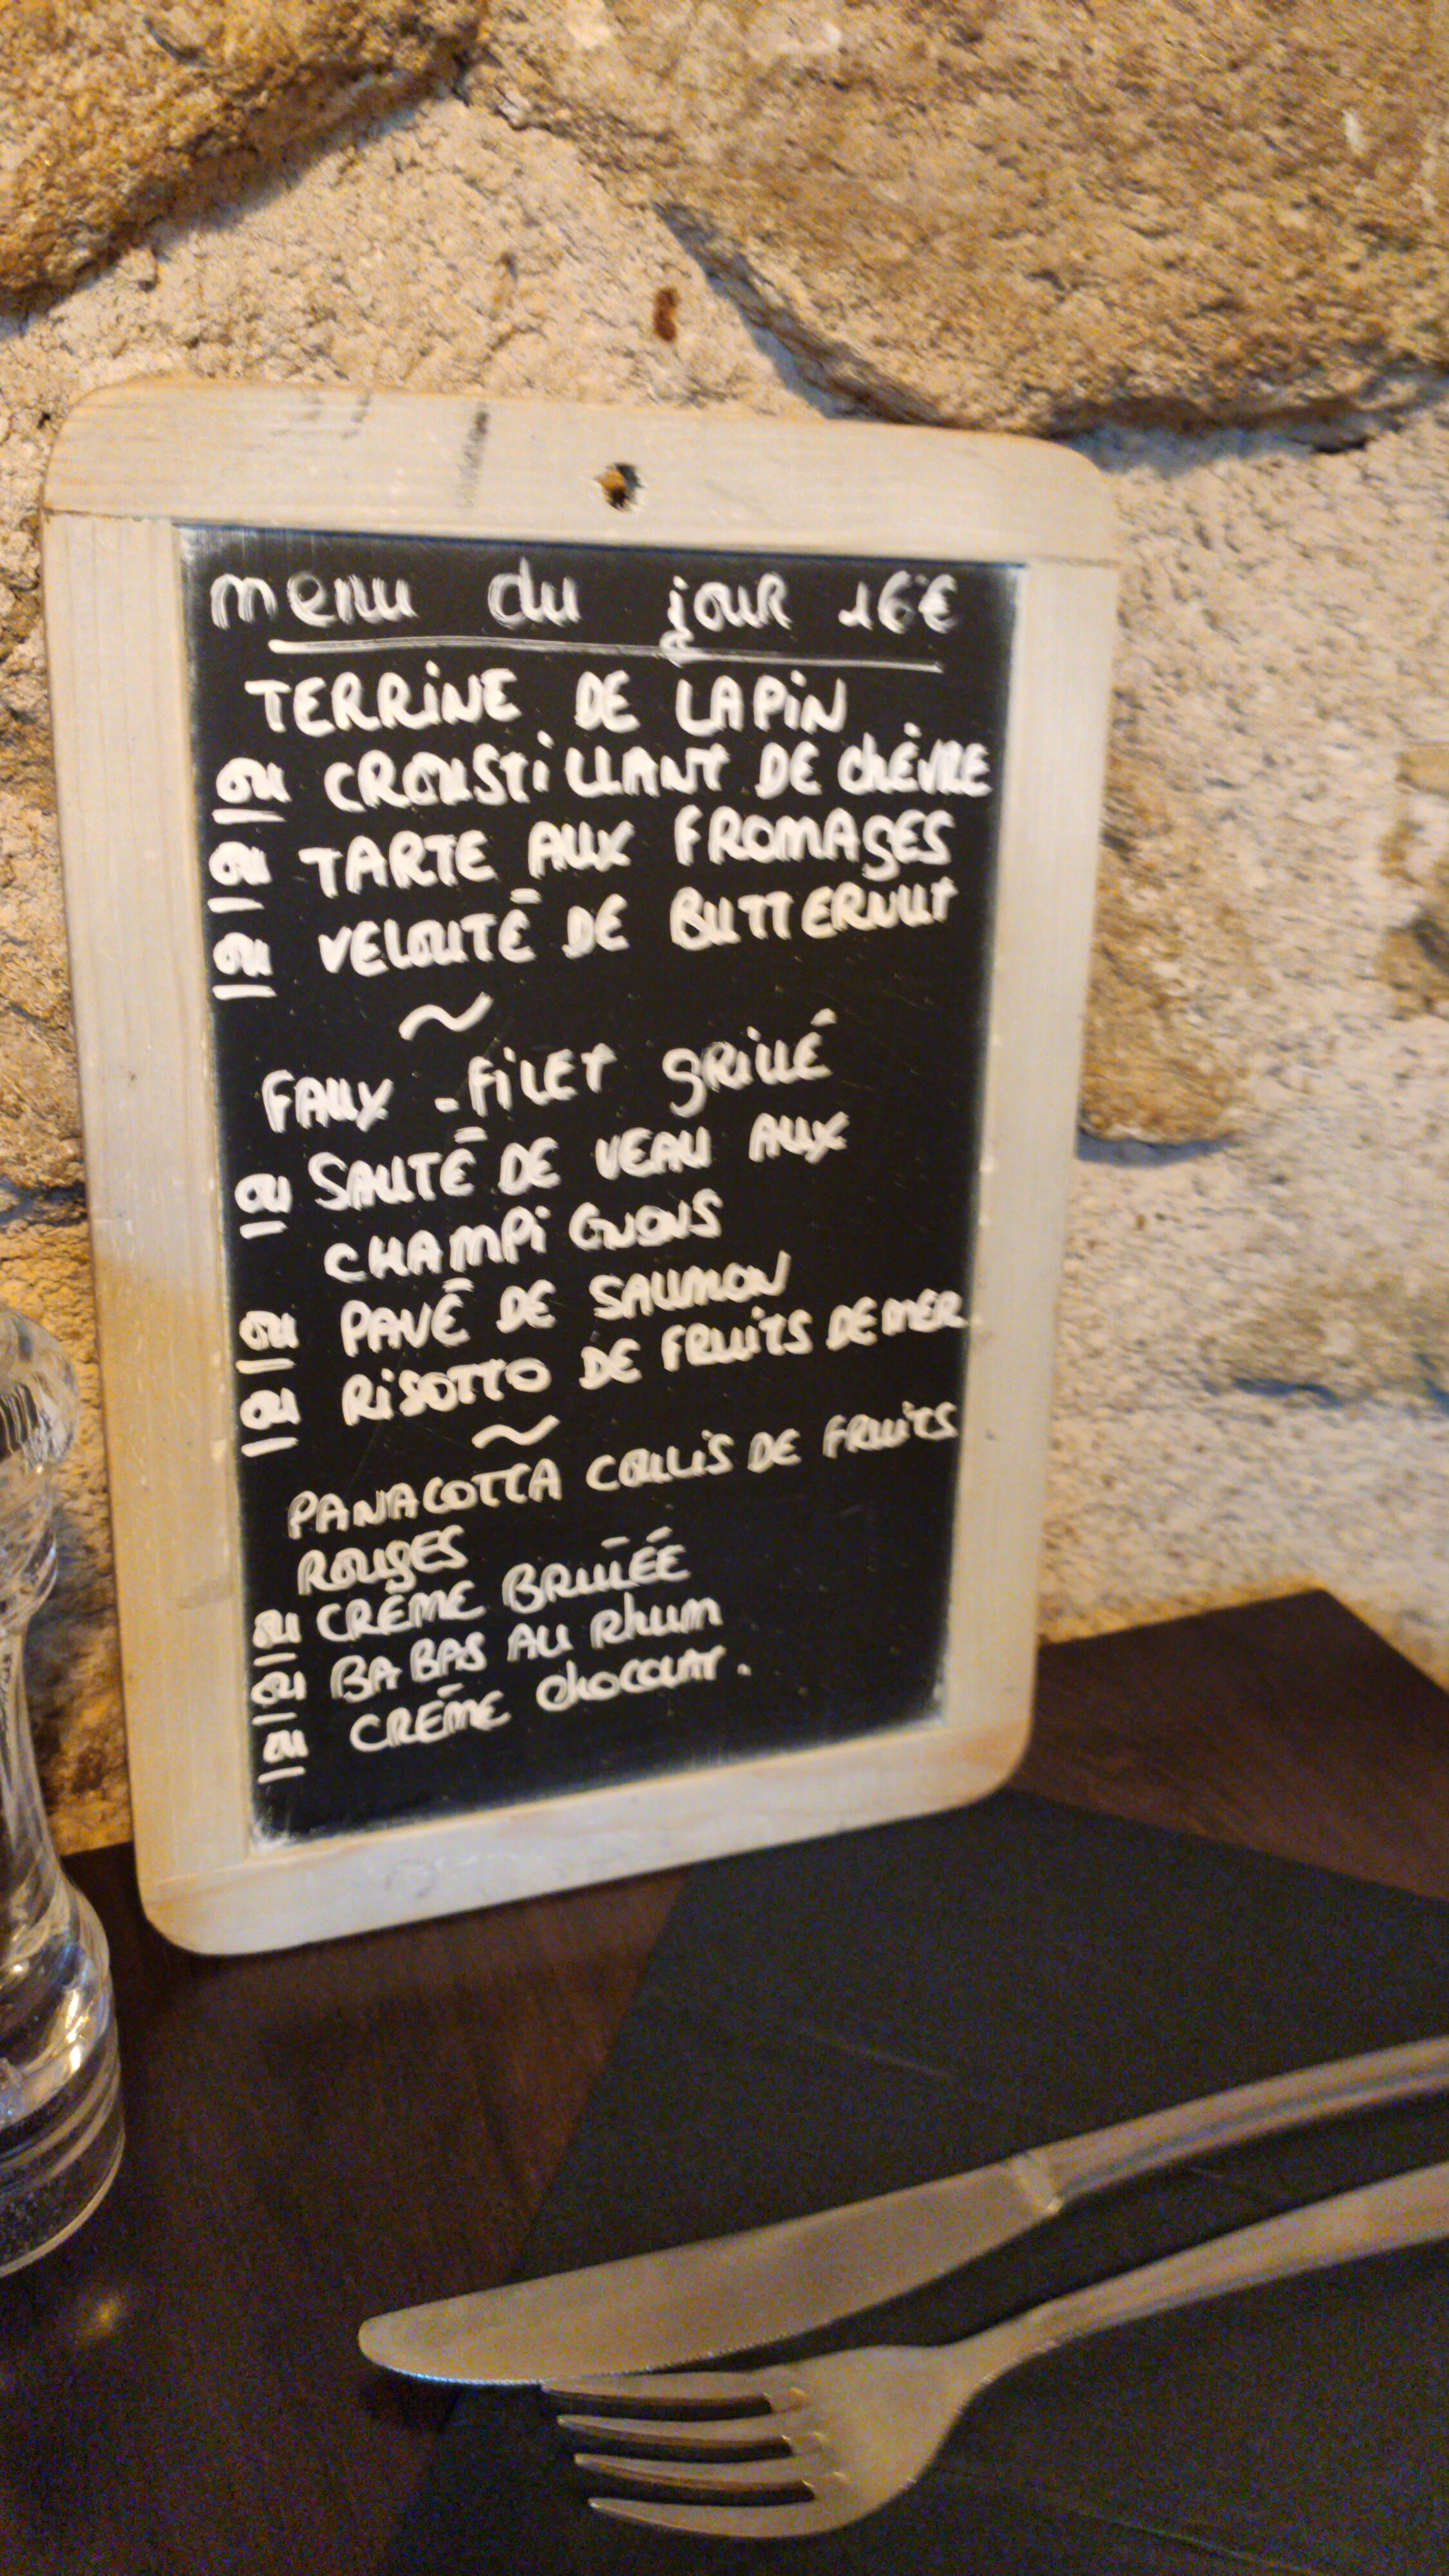 menu du jour 16€
TERRINE DE LAPIN
ou CROUSTILLANT DE CHÈVRE
ou TARTE AUX FROMAGES
ou VELOUTÉ DE BUTTERNUT
~
FAUX-FILET GRILLÉ
ou SAUTÉ DE VEAU AUX
CHAMPIGNONS
ou PAVÉ DE SAUMON
ou RISOTTO DE FRUITS DE MER
~
PANACOTTA COULIS DE FRUITS
ROUGES
ou CRÈME BRULÉE
ou BABAS AU RHUM
ou CRÈME CHOCOLAT.